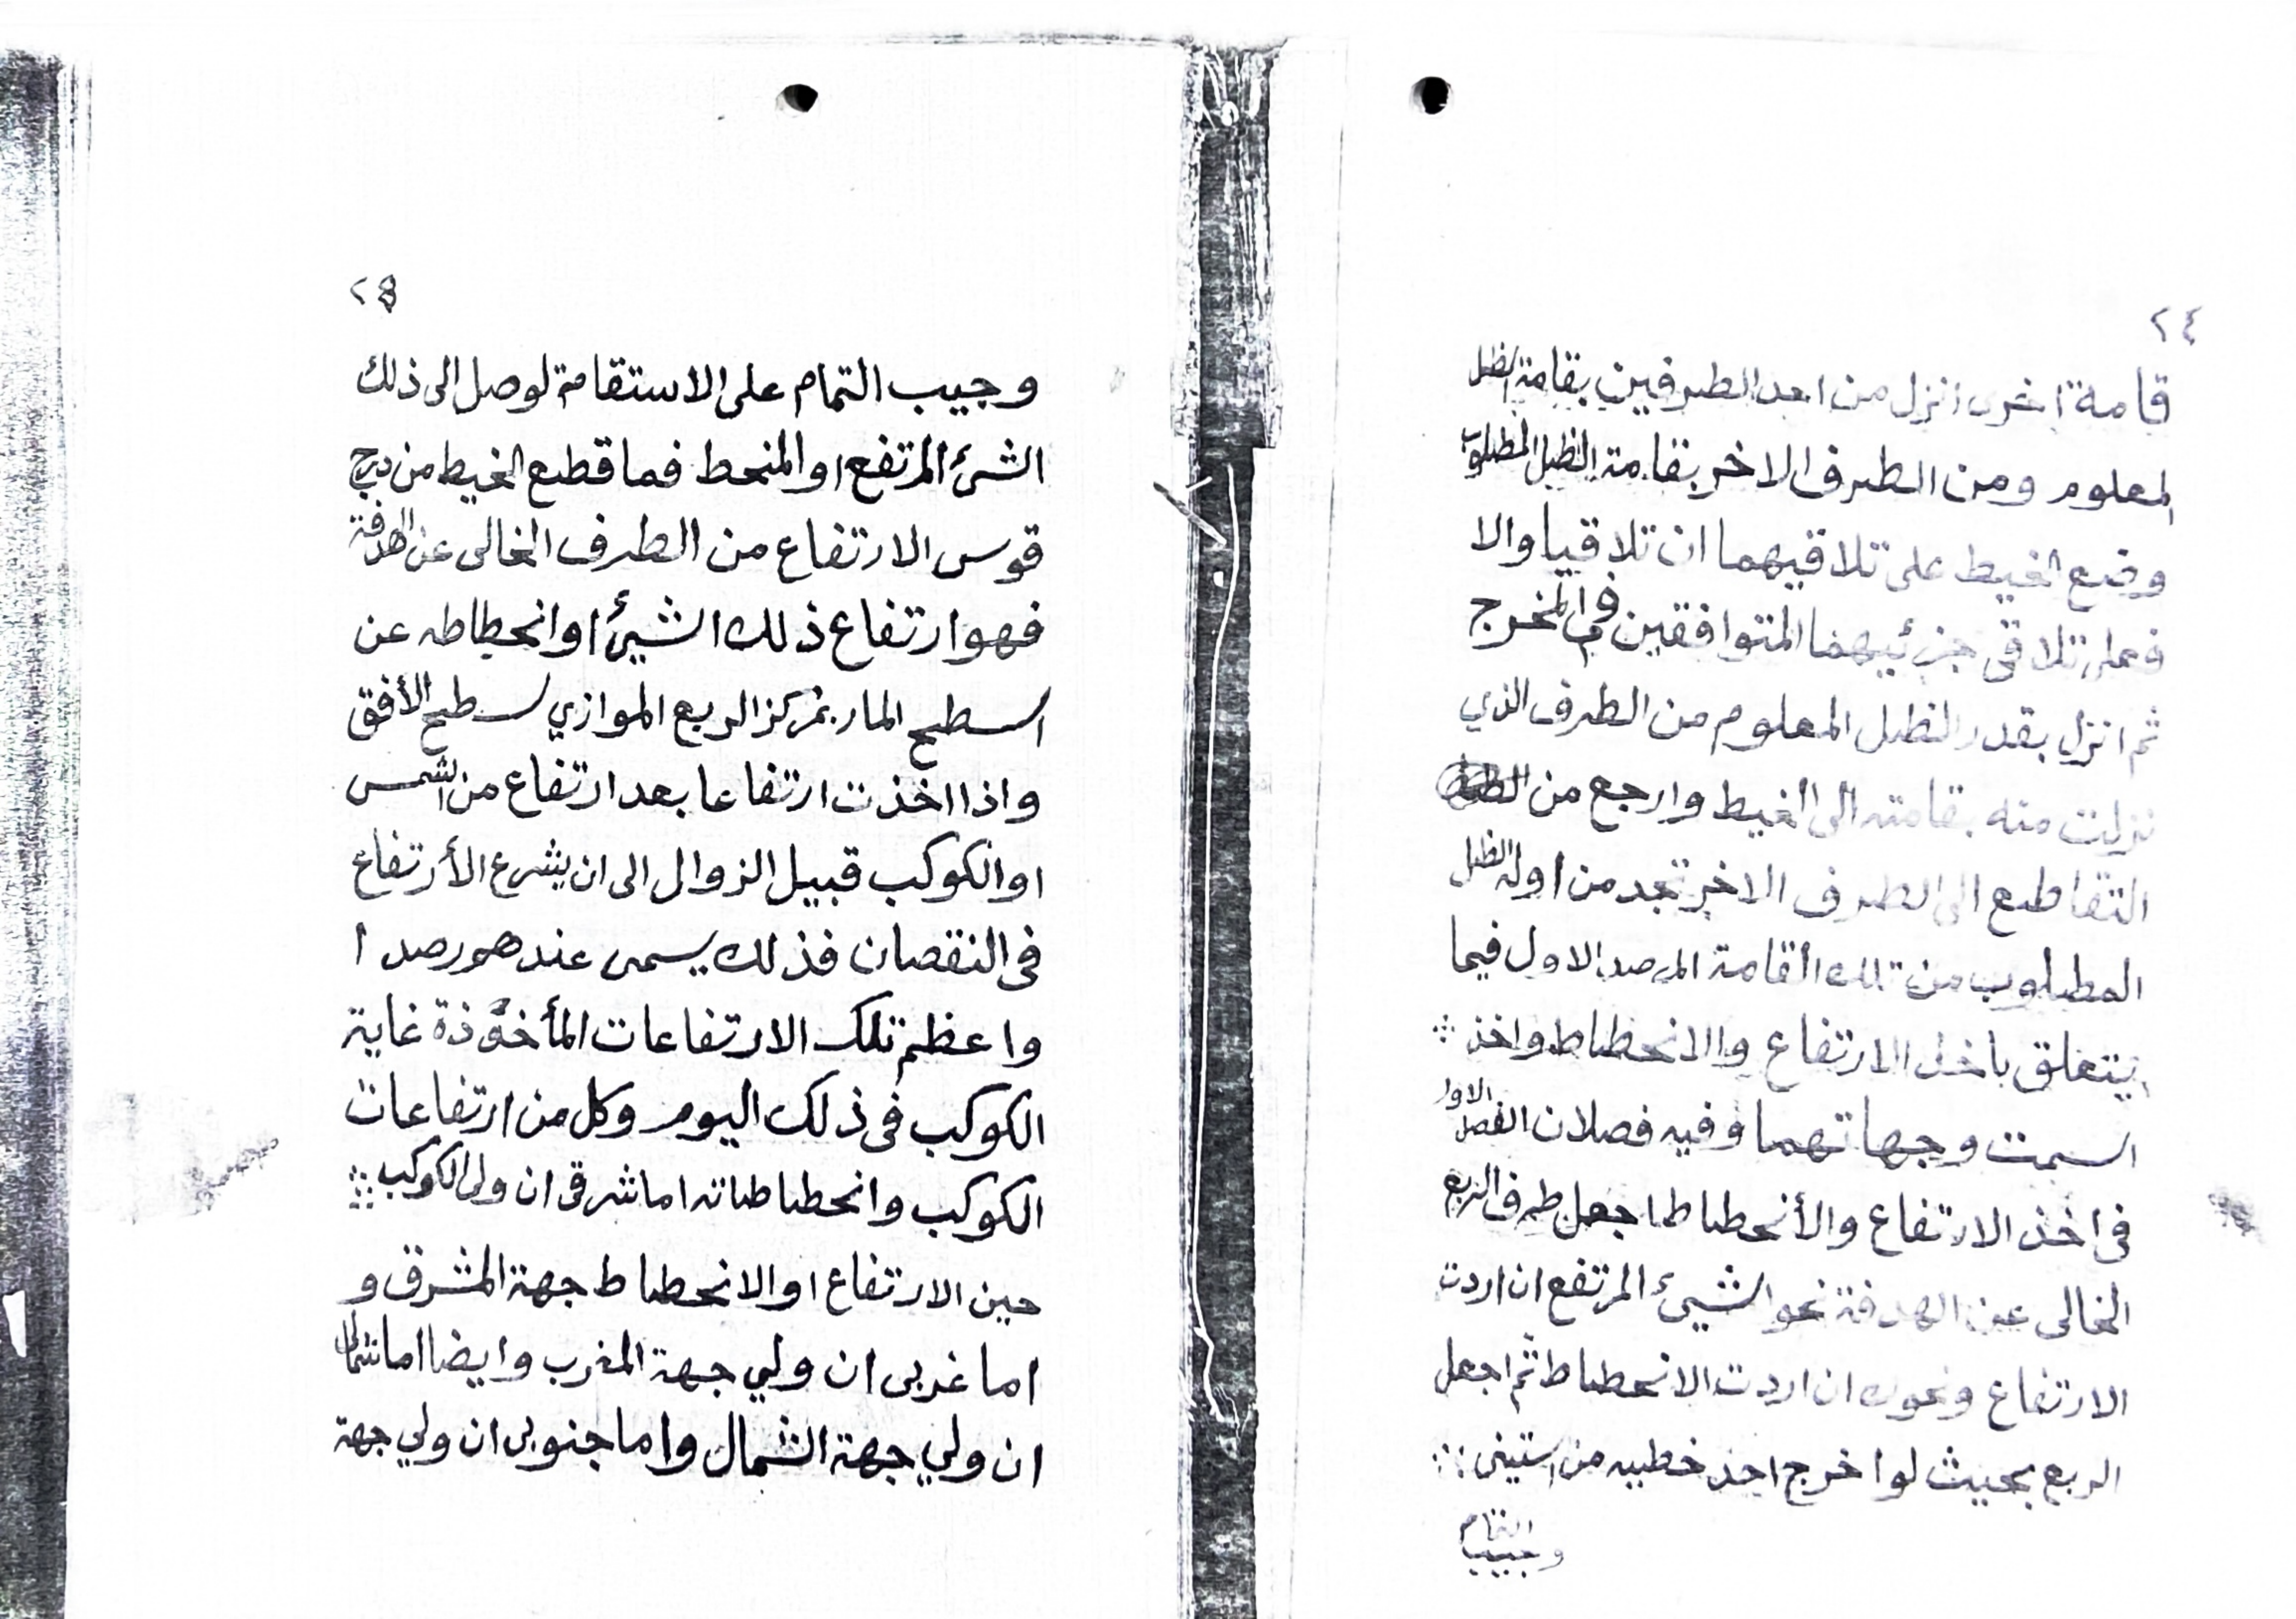 ٢٤
قامة اخرى انزل من احد الطرفين بقامة الظل
المعلوم ومن الطرف الاخر بقامة الظل المطلوب
وضع الخيط على تلاقيهما ان تلاقيا والا
فعلى تلاقى جزئيهما المتوافقين في المخرج
ثم انزل بقدر الظل المعلوم من الطرف الذي
نزلت منه بقامته الى الخيط وارجع من
التقاطع الى الطرف الاخر تجد من اوله الظل
المطلوب من تلك القامة المرصد الاول فيما
يتعلق باخذ الارتفاع والانحطاط واخذ
السمت وجهاتهما وفيه فصلان الفصل الاول
فى اخذ الارتفاع والأنحطاط اجعل طرف الربع
الخالى عن الهدفة نحو الشيء المرتفع ان اردت
الارتفاع ونحوك ان اردت الانحطاط ثم اجعل
الربع بحيث لو اخرج احد خطيه من الستينى
وجيب التمام
٢٥
وجيب التمام على الاستقامة لوصل الى ذلك
الشئ المرتفع او المنحط فما قطع الخيط من درج
قوس الارتفاع من الطرف الخالى عن الهدفة
فهو ارتفاع ذلك الشيئ او انحطاطه عن
السطح المار بمركز الربع الموازي لسطح الأفق
واذا اخذت ارتفاعا بعد ارتفاع من الشمس
او الكوكب قبيل الزوال الى ان يشرع الأرتفاع
فى النقصان فذلك يسمى عندهم رصدا
واعظم تلك الارتفاعات المأخوذة غاية
الكوكب فى ذلك اليوم وكل من ارتفاعات
الكوكب وانحطاطاته اما شرقى ان ولى الكوكب
حين الارتفاع او الانحطاط جهة المشرق و
اما غربى ان ولي جهة المغرب وايضا اما شمالى
ان ولي جهة الشمال واما جنوبى ان ولي جهة